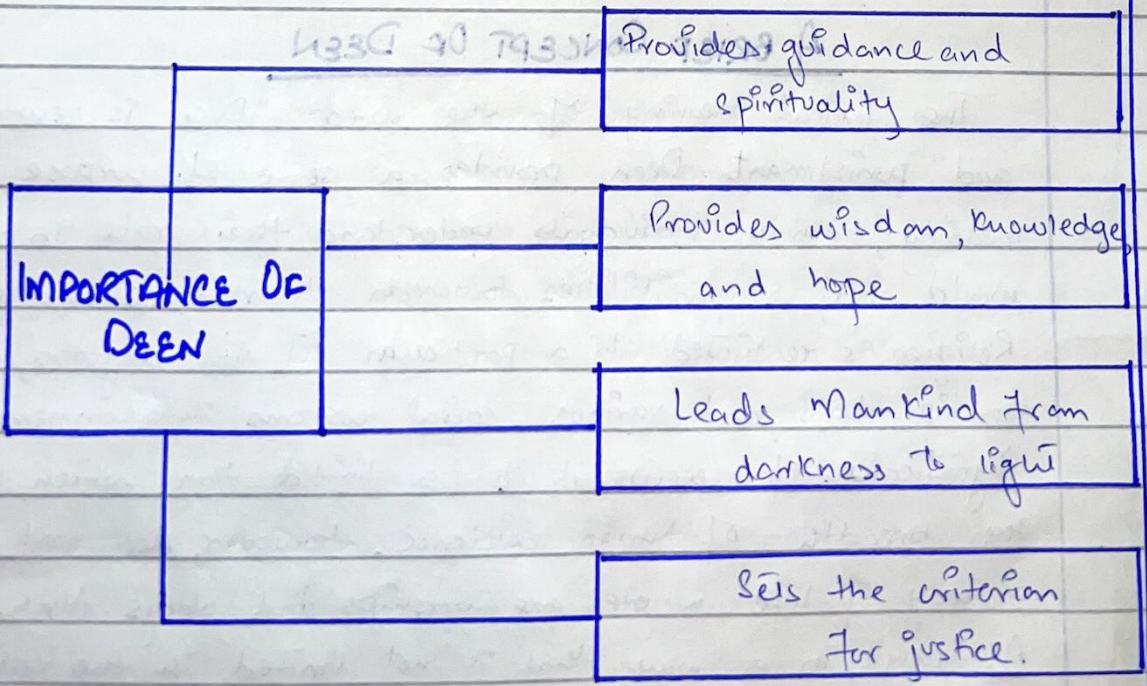 IMPORTANCE OF
DEEN
Provides guidance and
spirituality
Provides wisdom, knowledge,
and hope
Leads Mankind from
darkness to light
Sets the criterion
for justice.